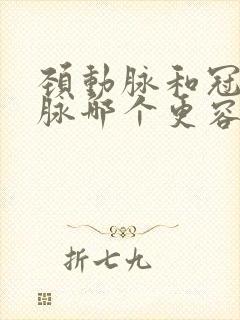 颈動脉和冠
脉那个更容
折七九